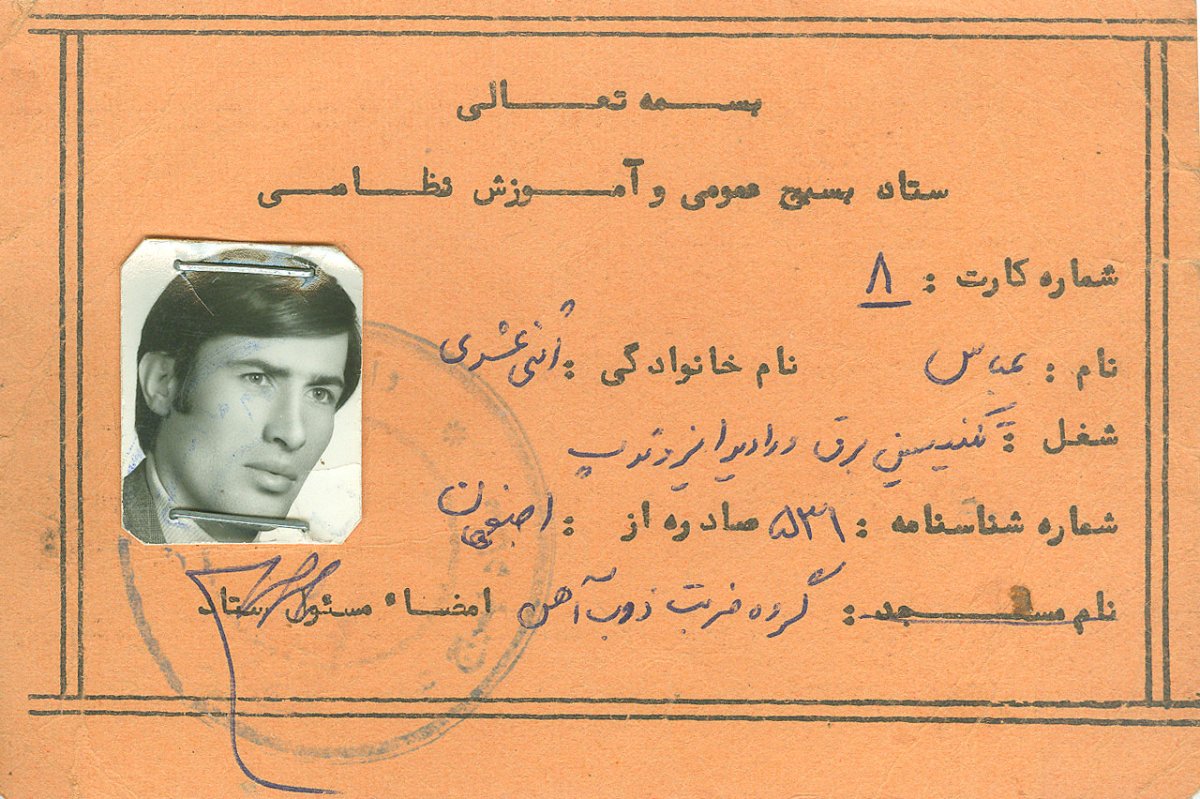 بسمه تعالی
ستاد بسیج عمومی و آموزش نظامی
شماره کارت : ۸
نام : عباس نام خانوادگی : اثنی عشری
شغل : تکنیسین برق و رادیو
شماره شناسنامه : ۵۳۱ صادره از : اصفهان
نام مسجد : گروه ضربت ذوب آهن امضاء مسئول ستاد